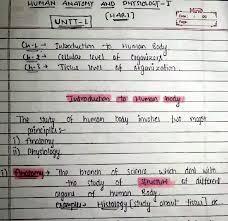 HUMAN ANATOMY AND PHYSIOLOGY-I
UNIT-1 [HAP1]
Ch-1 → Introduction to Human Body
Ch-2 → Cellular level of Organizers
Ch-3 → Tissue level of organization.
Introduction to Human body
The study of human body involves two major
principles-
i) Anatomy
ii) Physiology
i) Anatomy → The branch of science which deal with
the study of structure of different
organs of human Body.
examples → Histology [study about tissue] etc